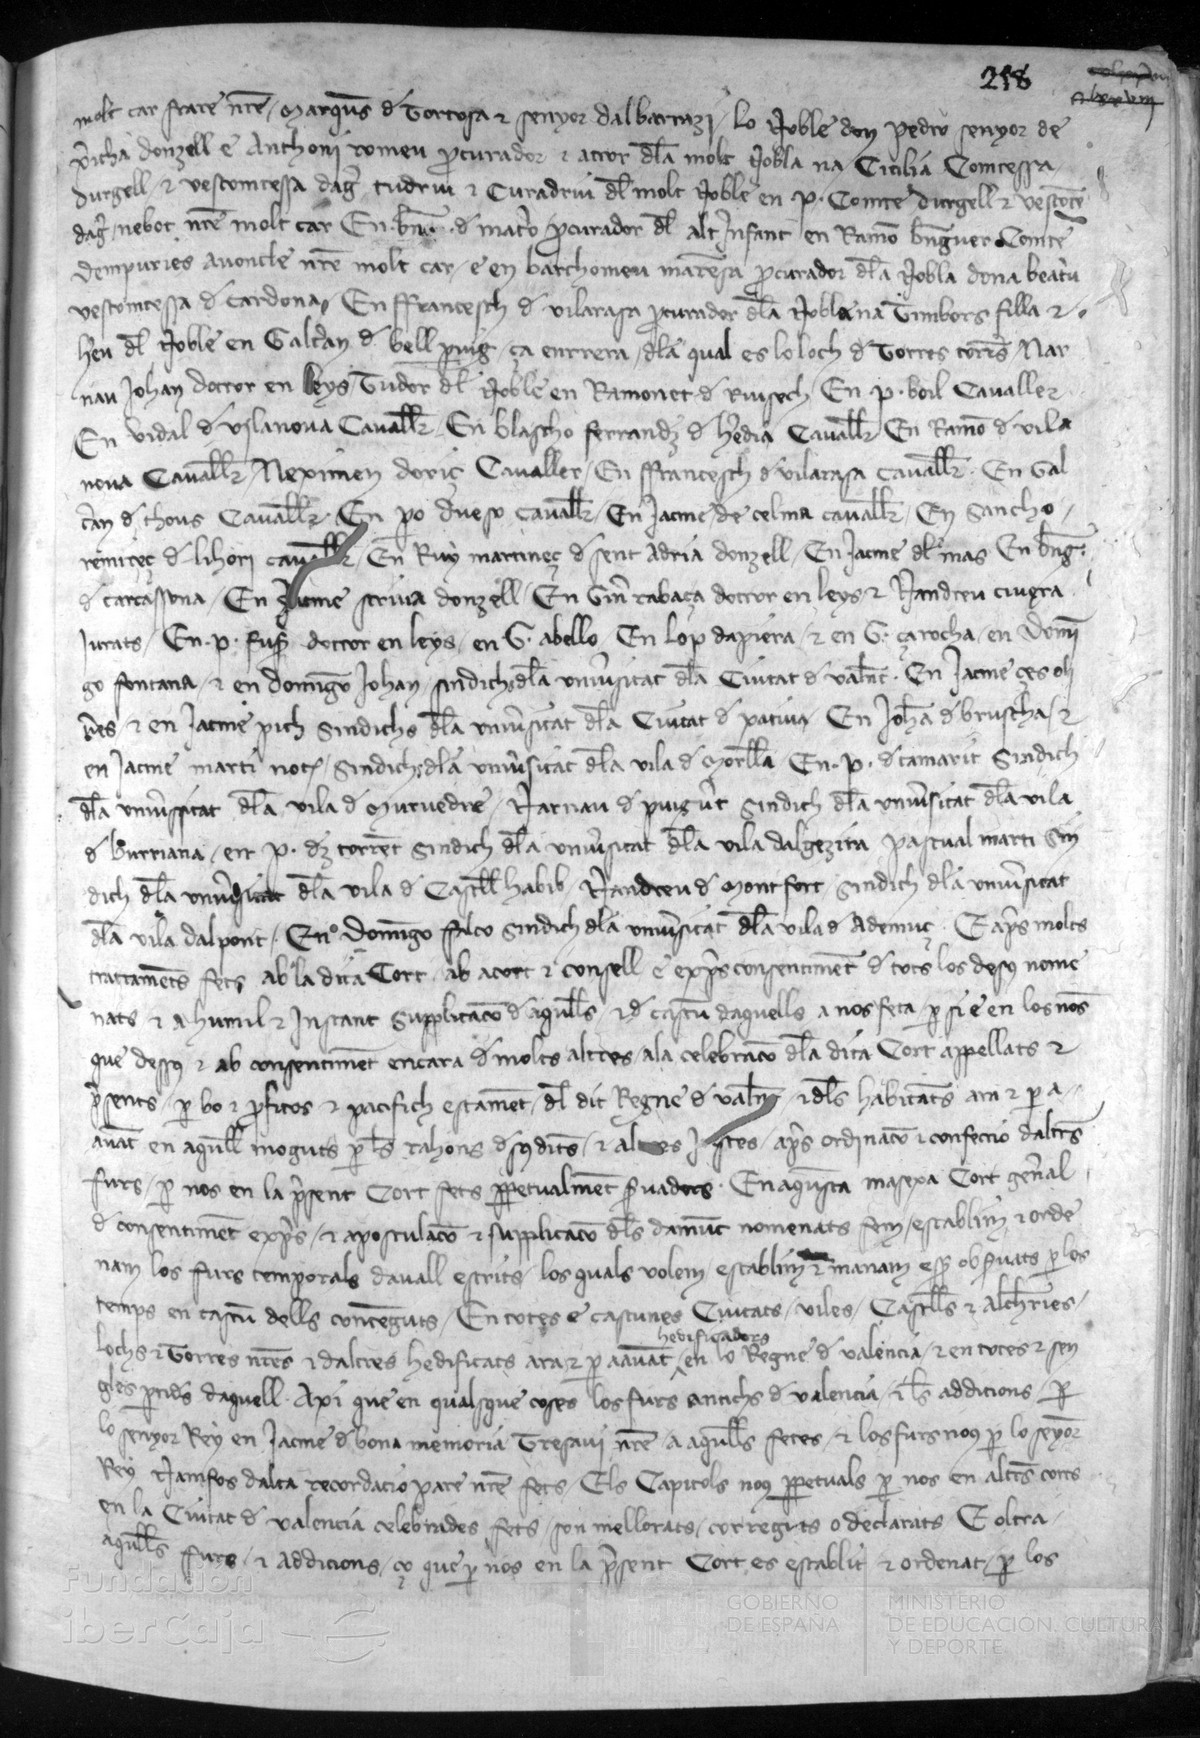 218
molt car frare nr̄e / Marques̄ d̄ Tortosa ⁊ senyor dalbarrazi / lo Noble don Pedro senyor de
xerīcha donzell e Anthoni romeu p̄curador ⁊ actor dl̄a molt Nobla na Cicilia Comtessa
durgell ⁊ vescomtessa dag̃ tudriu ⁊ Curadriu dl̄ molt Noble en .p. Comte durgell ⁊ vescōte
dag̃ / nebot nr̄e molt car En .bn̄. d̄ p̄curador dl̄ alt Infant en Ramō bn̄guer Comte
dempuries avoncle nr̄e molt car / e en barthomeu p̄curador dl̄a Nobla dona beatu
vescomtessa d̄ Cardona / En ffrancesch d̄ vilarasa p̄curador dl̄a Nobla na Timbors filla ⁊
heu dl̄ Noble en Galcan d̄ bell puig / ça enrrera / dl̄a qual es lo loch d̄ Torres torres̄ / Nar
nau Johan doctor en leys Tudor dl̄ Noble en Ramonet d̄ Riusech / En .p. boil Cavaller
En vidal d̄ vilanova Cavall̄r / En blascho ferrandz̄ d̄ hedia Cavall̄r En Ramō d̄ vila
nova Cavall̄r / Neximen doriç Cavaller / En ffrancesch d̄ vilarasa cavall̄r . En Gal
cran d̄ thous Cavall̄r . En po cavall̄r / En Jacme de celma cavall̄r / En Sancho
remireç d̄ lihori cavall̄r / En Ruy martineç d̄ sent Adria donzell / En Jacme dl̄ mas En bn̄g:
d̄ carcassona / En Jacme scriva donzell / En Gm̄ rabaça doctor en leys ⁊ Nandreu civera
Jurats / En .p. fust̄ doctor en leys / en G. abello En lop dapiera / ⁊ en G. çarocha / en Domī
go fontana / ⁊ en domīgo Johan / sindichs dl̄a univ̄sitat dl̄a Ciutat d̄ valn̄c . En Jacme ces oli
veres / ⁊ en Jacme pich Sindichs dl̄a univ̄sitat dl̄a Ciutat d̄ xativa En Joha d̄ bruscha / ⁊
en Jacme marti not̄ / Sindichs dl̄a univ̄sitat dl̄a vila d̄ Morell̄a En .p. d̄ tamarit Sindich
dl̄a univ̄sitat dl̄a vila d̄ Murvedre / Narnau d̄ puigūt Sindich dl̄a univ̄sitat dl̄a vila
d̄ burriana / en .p. dz̄ torrēt Sindich dl̄a univ̄sitat dl̄a vila dalgezira pascual marti Sin
dich dl̄a univ̄sitat dl̄a vila d̄ Castell̄ habib Nandreu d̄ Montfort / sindich dl̄a univ̄sitat
dl̄a vila dalpont / En Domīgo falco Sindich dl̄a univ̄sitat dl̄a vila d̄ Ademuç . E ap̄s molts
tractamēts fets ab la dita Cort / ab acort ⁊ consell e exp̄s consentimēt d̄ tots los desq̄ nome
nats ⁊ a humil ⁊ Instant Supplicacō d̄ aquell̄s / ⁊ d̄ cascū daquells a nos feta / p̄ si e en los nōs
que desq̄ ⁊ ab consentimēt encara d̄ molts altres / ala celebracō dl̄a dita Cort appellats ⁊
p̄sents / p̄ bo ⁊ p̄fitos ⁊ pacifich estamēt / dl̄ dit Regne d̄ valn̄c / ⁊ dl̄s habitāts ara ⁊ p̄ a
avāt en aquell̄ moguts p̄ ls̄ rahons d̄sq̄ dits / ⁊ altres Justes / ap̄s ordinacō ⁊ confeccio daltrs̄
furs / p̄ nos en la p̄sent Cort fets pp̄etualmēt s̄vadors . En aquesta maxexa Cort gen̄al
d̄ consentimēt exp̄s / ⁊ apostulacō ⁊ supplicacō dl̄s damūt nomenats fem / establim ⁊ orde
nam los furs temporals davall escrits / los quals volem establim ⁊ manam ess̄ obs̄vats p̄ los
temps en cascū dells contenguts / En totes e cascunes Ciutats / viles / Castell̄s ⁊ Alch̄ries
hedificadors
lochs ⁊ Torres nr̄es ⁊ daltres hedificats ara ⁊ p̄ aavāt / en lo Regne d̄ valencia / ⁊ en totes ⁊ sen
gles p̄tides daquell . Axi que en qualsque coses los furs antichs d̄ valencia / ⁊ ls̄ addicions / p̄
lo senyor Rey en Jacme d̄ bona memoria Tresavi nr̄e / a aquell̄s fetes / ⁊ los furs nous p̄ lo seyor
Rey Namfos dalta recordacio pare nr̄e fets Els Capitols nous pp̄etuals p̄ nos en altrs̄ corts
en la Ciutat d̄ valencia celebrades fets / son mellorats / corregits o declarats E oltra
aquell̄s furs / ⁊ addicions / ço que p̄ nos en la p̄sent Cort es establit ⁊ ordenat / p̄ los
Fundación
iberCaja
GOBIERNO
DE ESPAÑA
MINISTERIO
DE EDUCACIÓN, CULTURA
Y DEPORTE